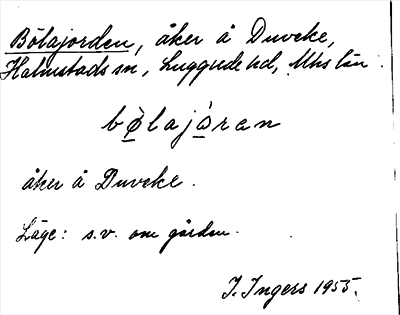 Bölajorden, åker å Duveke,
Halmstads sn, Luggude hd, Mhs län.
bølajoran
åker å Duveke.
Läge: s.v. om gården.
I. Ingers 1955.